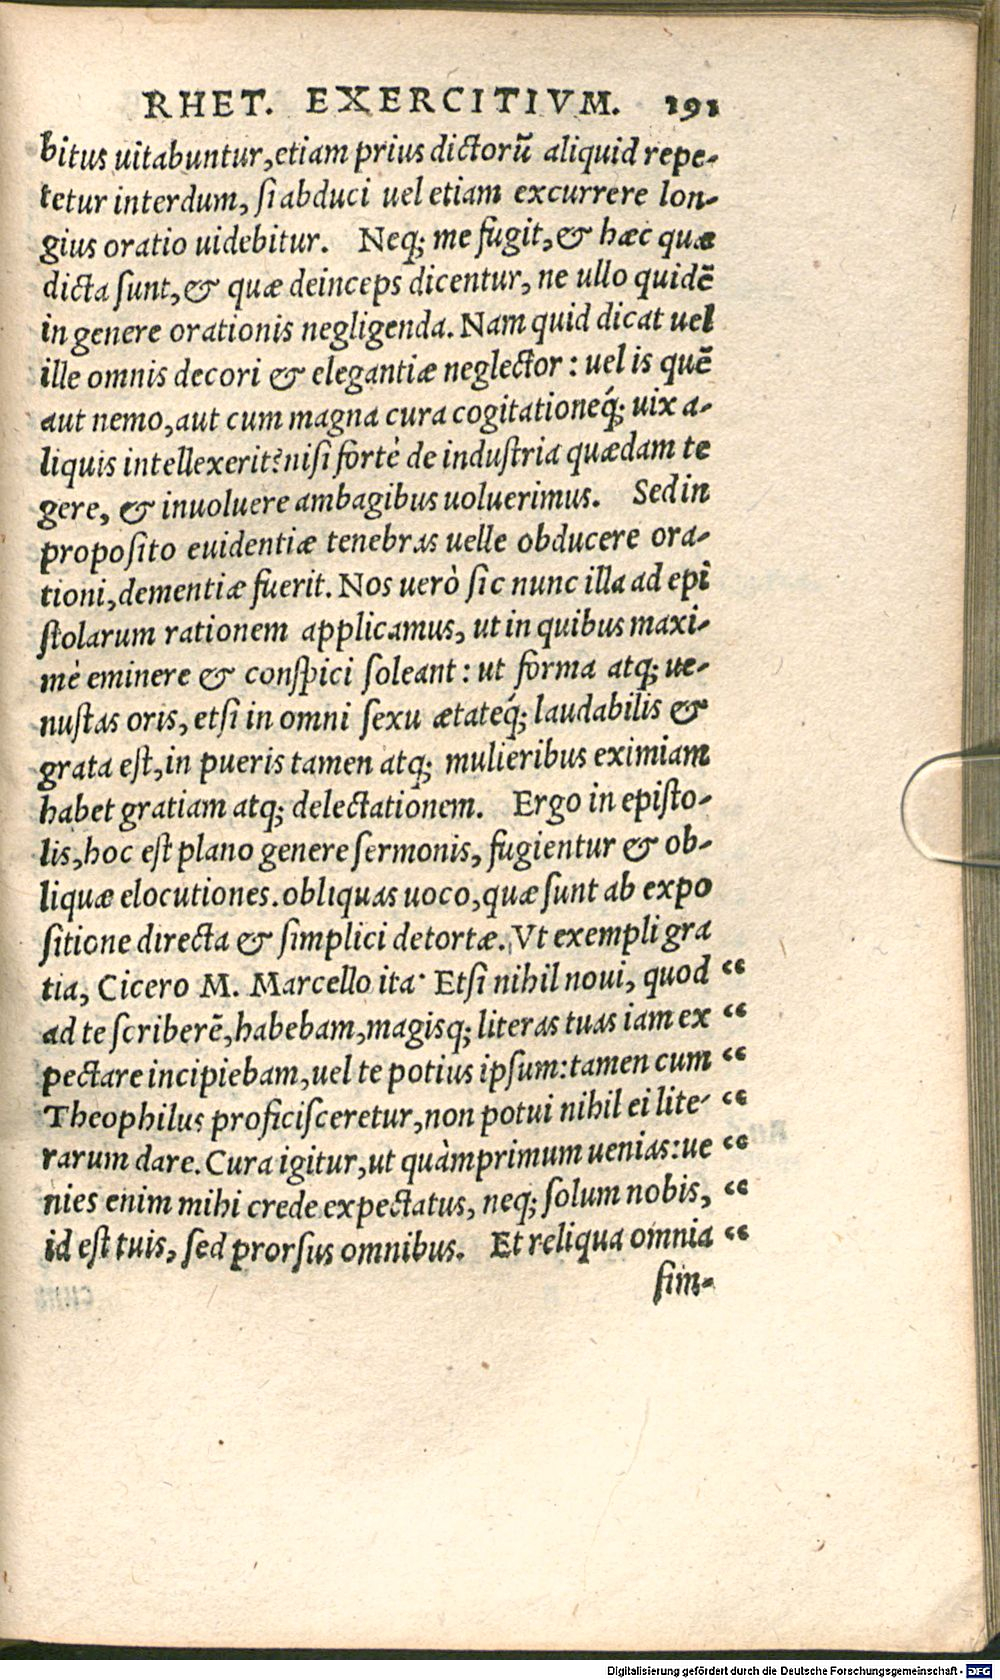 RHET. EXERCITIVM. 191
bitus uitabuntur, etiam prius dictorũ aliquid repe-
tetur interdum, si abduci uel etiam excurrere lon-
gius oratio uidebitur. Neq; me fugit, & hæc quæ
dicta sunt, & quæ deinceps dicentur, ne ullo quidẽ
in genere orationis negligenda. Nam quid dicat uel
ille omnis decori & elegantiæ neglector: uel is quẽ
aut nemo, aut cum magna cura cogitationeq́; uix a-
liquis intellexerit? nisi fortè de industria quædam te
gere, & inuoluere ambagibus uoluerimus. Sed in
proposito euidentiæ tenebras uelle obducere ora-
tioni, dementiæ fuerit. Nos uerò sic nunc illa ad epi
stolarum rationem applicamus, ut in quibus maxi-
mè eminere & conspici soleant: ut forma atq; ue-
nustas oris, etsi in omni sexu ætateq́; laudabilis &
grata est, in pueris tamen atq; mulieribus eximiam
habet gratiam atq; delectationem. Ergo in episto-
lis, hoc est plano genere sermonis, fugientur & ob-
liquæ elocutiones. obliquas uoco, quæ sunt ab expo
sitione directa & simplici detortæ. Vt exempli gra
tia, Cicero M. Marcello ita· Etsi nihil noui, quod “
ad te scriberẽ, habebam, magisq; literas tuas iam ex “
pectare incipiebam, uel te potius ipsum: tamen cum “
Theophilus proficisceretur, non potui nihil ei lite- “
rarum dare. Cura igitur, ut quàmprimum uenias: ue “
nies enim mihi crede expectatus, neq; solum nobis, “
id est tuis, sed prorsus omnibus. Et reliqua omnia “
sim-
Digitalisierung gefördert durch die Deutsche Forschungsgemeinschaft - DFG